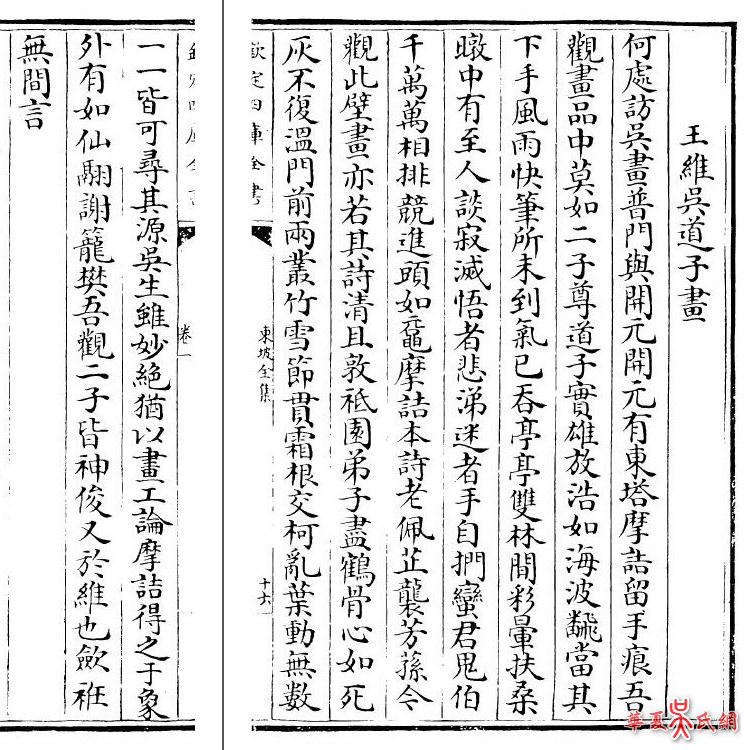 王維吳道子畫
何處訪吳畫普門與開元開元有東塔摩詰留手痕吾
觀畫品中莫如二子尊道子實雄放浩如海波飜當其
下手風雨快筆所未到氣已吞亭亭雙林間彩暈扶桑
暾中有至人談寂滅悟者悲涕迷者手自捫蠻君鬼伯
千萬萬相排競進頭如黿摩詰本詩老佩芷襲芳蓀今
觀此壁畫亦若其詩清且敦祗園弟子盡鶴骨心如死
灰不復溫門前兩叢竹雪節貫霜根交柯亂葉動無數
欽定四庫全書
東坡全集
十六
卷一
一一皆可尋其源吳生雖妙絶猶以畫工論摩詰得之于象
外有如仙翮謝籠樊吾觀二子皆神俊又於維也歛袵
無間言
華夏吴氏網